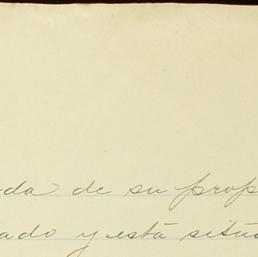 da de su prop
ado y está situa